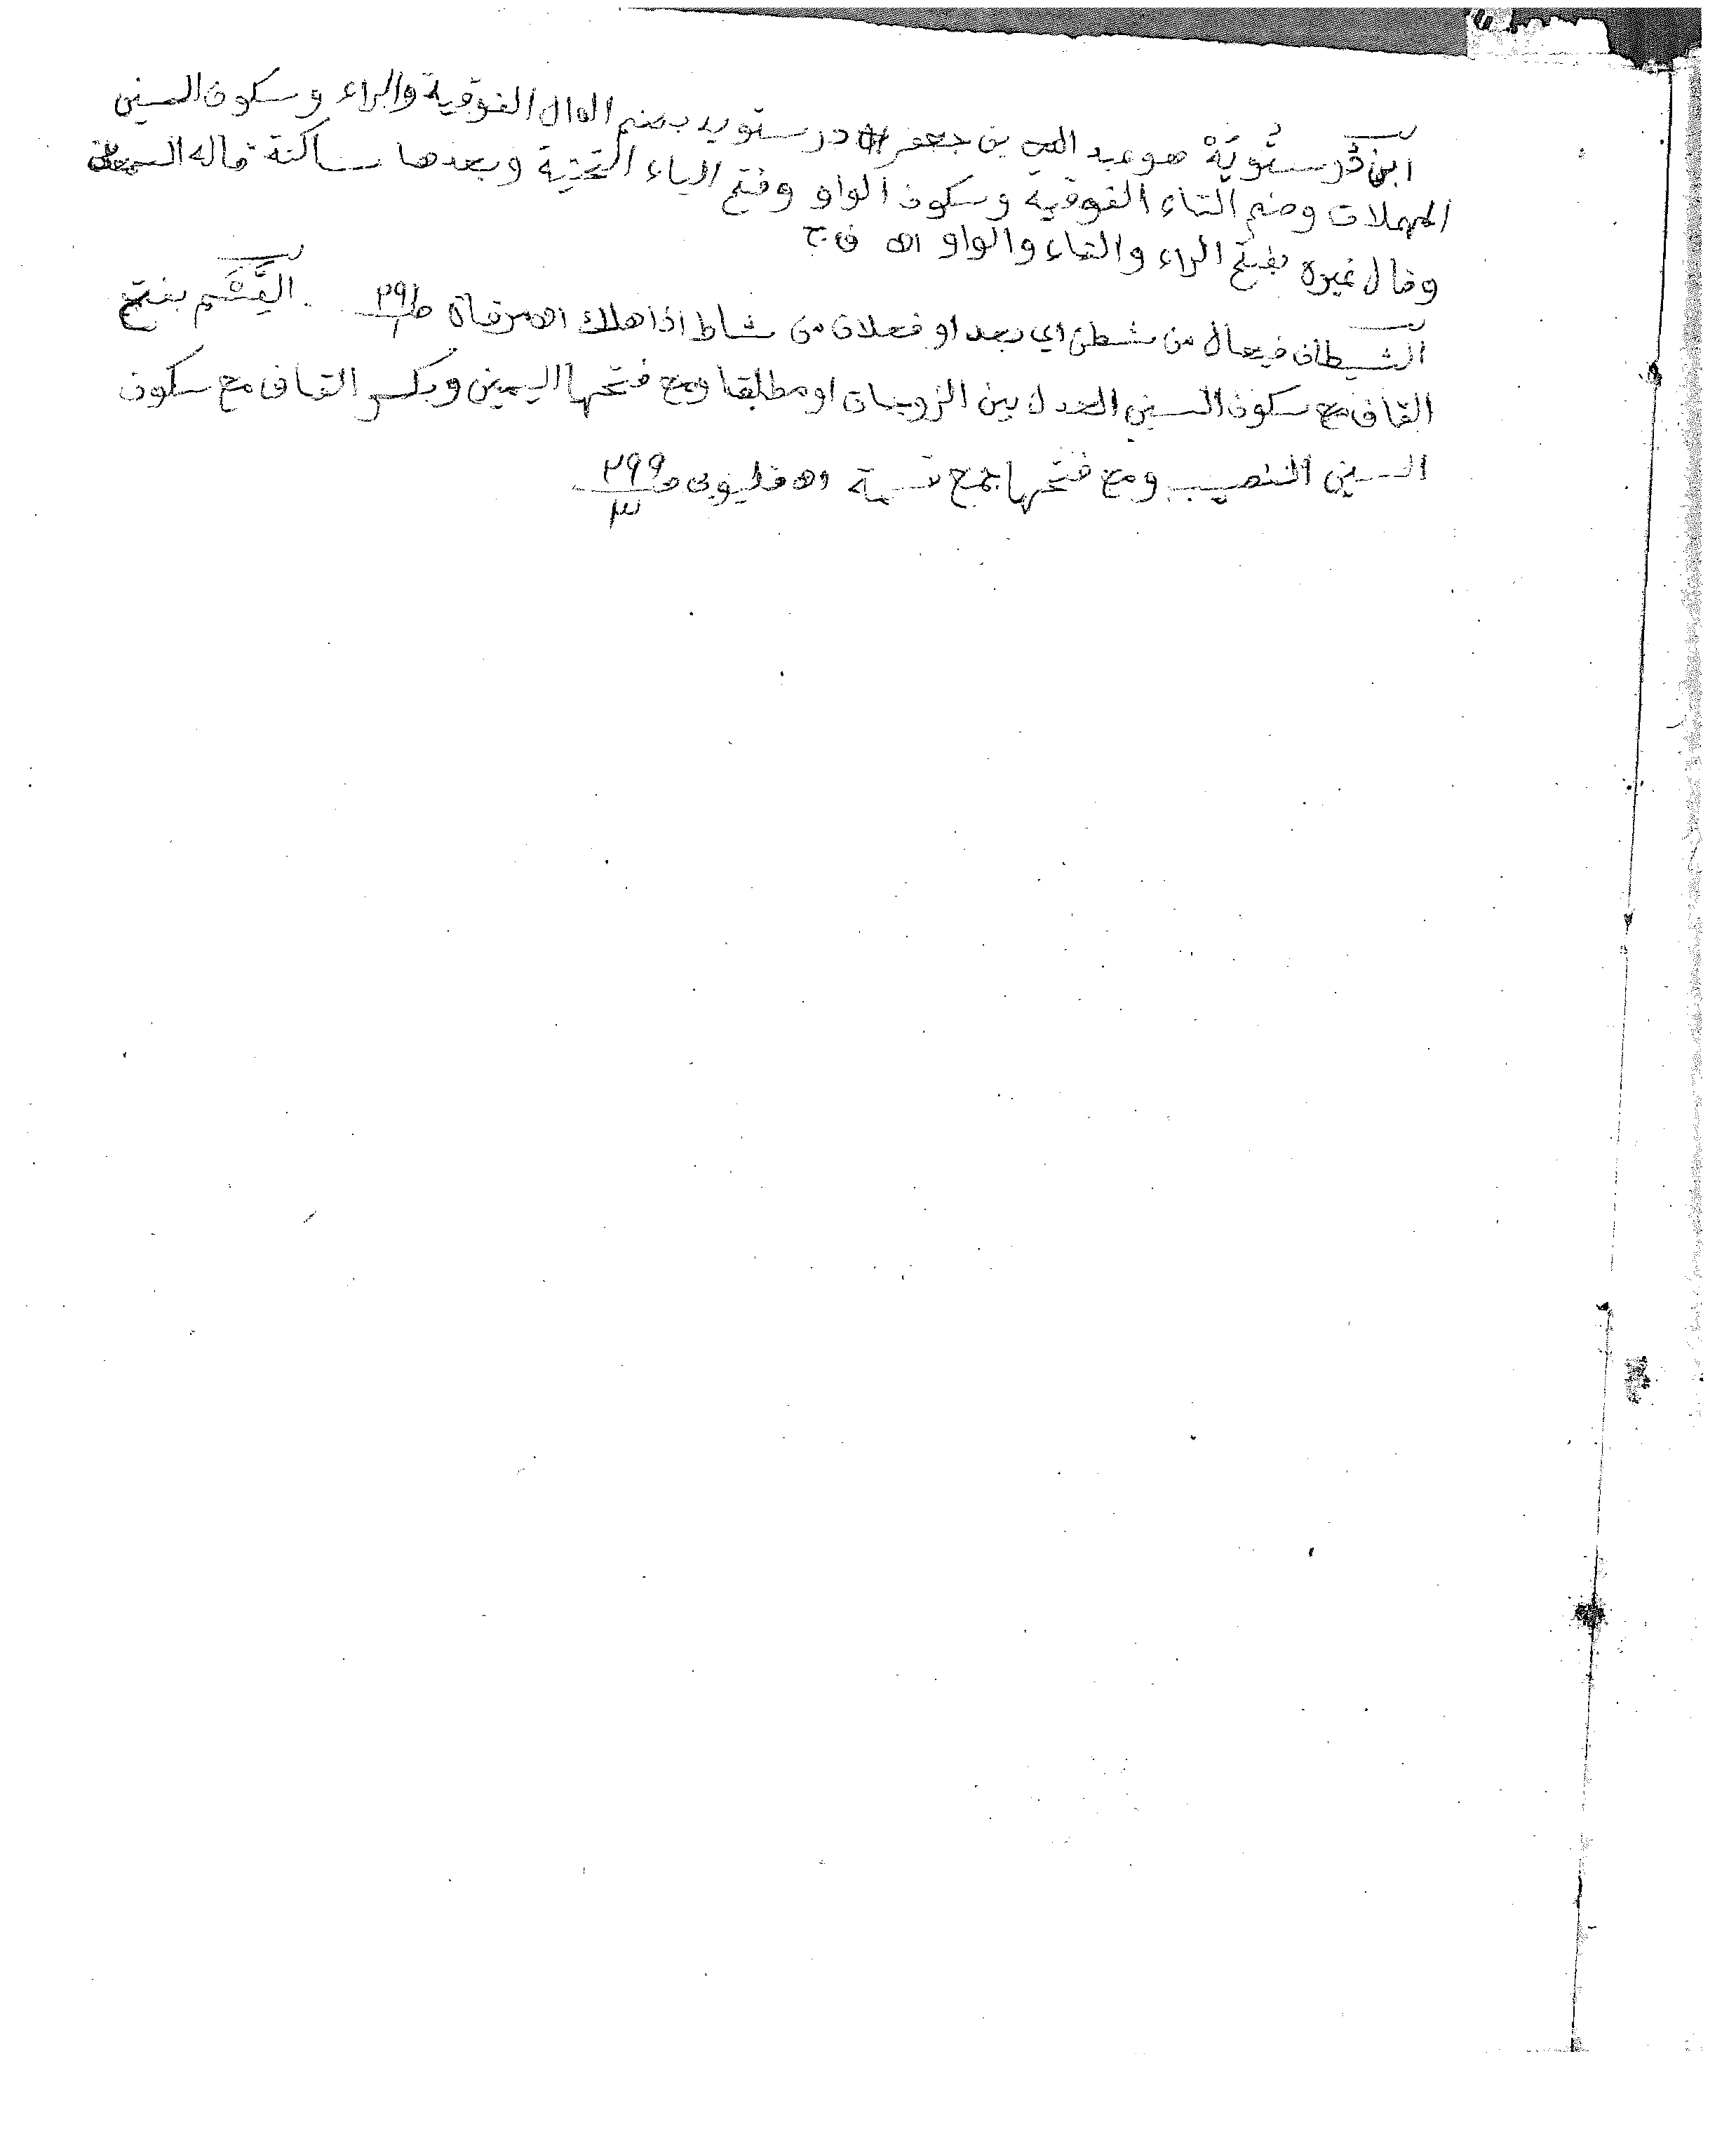 ابن دُرستُويَهْ هو عبد الله بن جعفر بن درستويه بضم الدال الفوقية والراء وسكون السين
المهملات وضم التاء الفوقية وسكون الواو وفتح الياء التحتية وبعدها ساكنة قاله السمعاني
وقال غيره بفتح الراء والتاء والواو اه ف ج
الشيطان فيعال من شطن اي بعد او فعلان من شاط اذا هلك اه مرقاة ص ٢٩/١ . القَسَم بفتح
القاف مع سكون السين العدل بين الزوجات او مطلقا ومع فتحها اليمين وبكسر القاف مع سكون
السين النصيب ومع فتحها جمع قسمة اه قليوبي ص ٢٩٩/٣